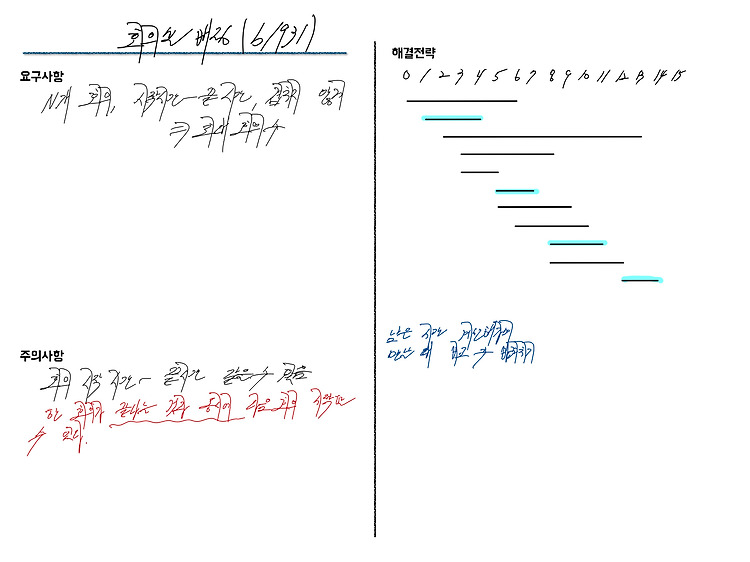 회의실 배정 (b/931)
요구사항
N개 회의, 시작시간 - 끝 시간, 겹치지 않게
⇒ 최대 회의 수
주의사항
회의 시작 시간 - 끝시간 같은 수 있음
한 회의가 끝나는 것과 동시에 다음 회의 시작될
수 있다.
해결전략
0 1 2 3 4 5 6 7 8 9 10 11 12 13 14 15
남은 시간
만난 최고 수